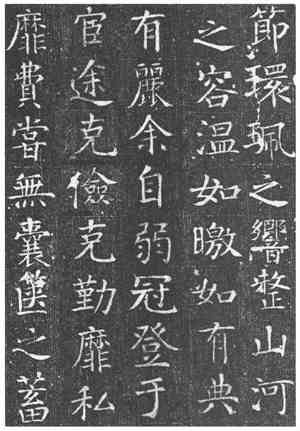 節環珮之響整山河
之容温如暾如有典
有麗余自弱冠登于
宦途克儉克勤靡私
靡費嘗無囊篋之蓄